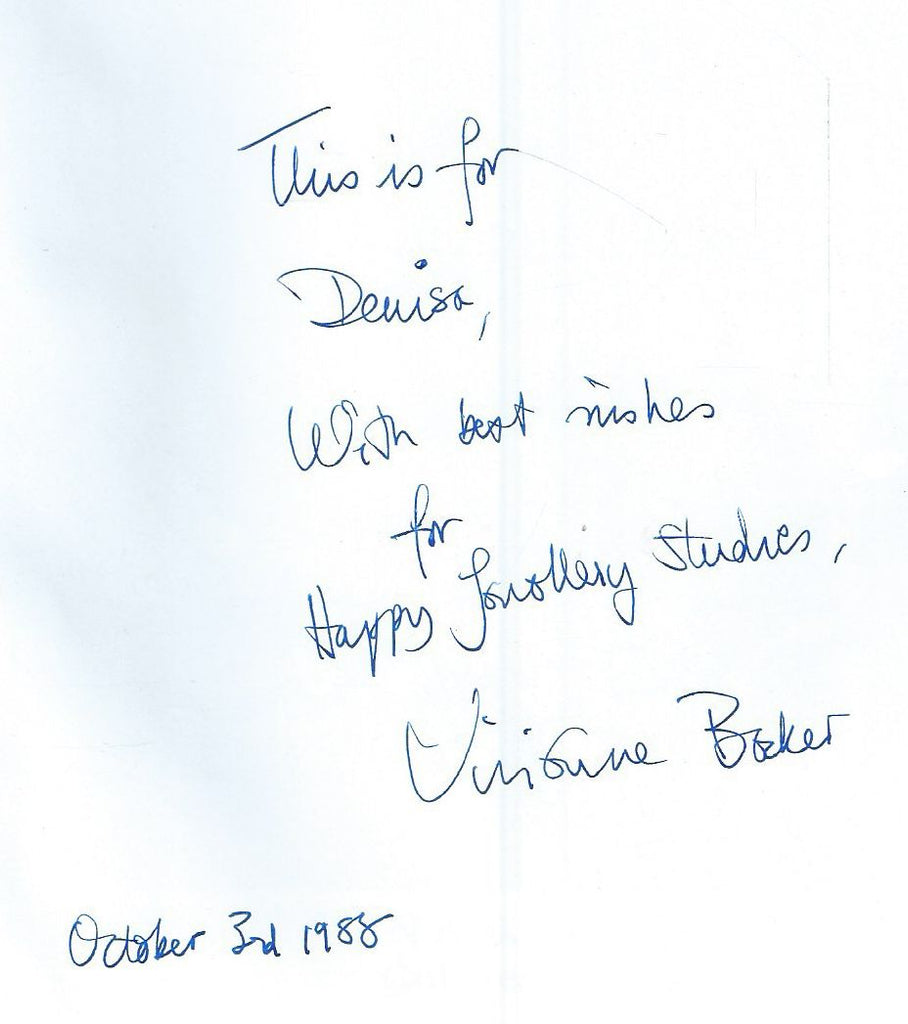 This is for
Denisa,
With best wishes
for
Happy Jewellery Studies,
Vivienne Becker
October 3rd 1988